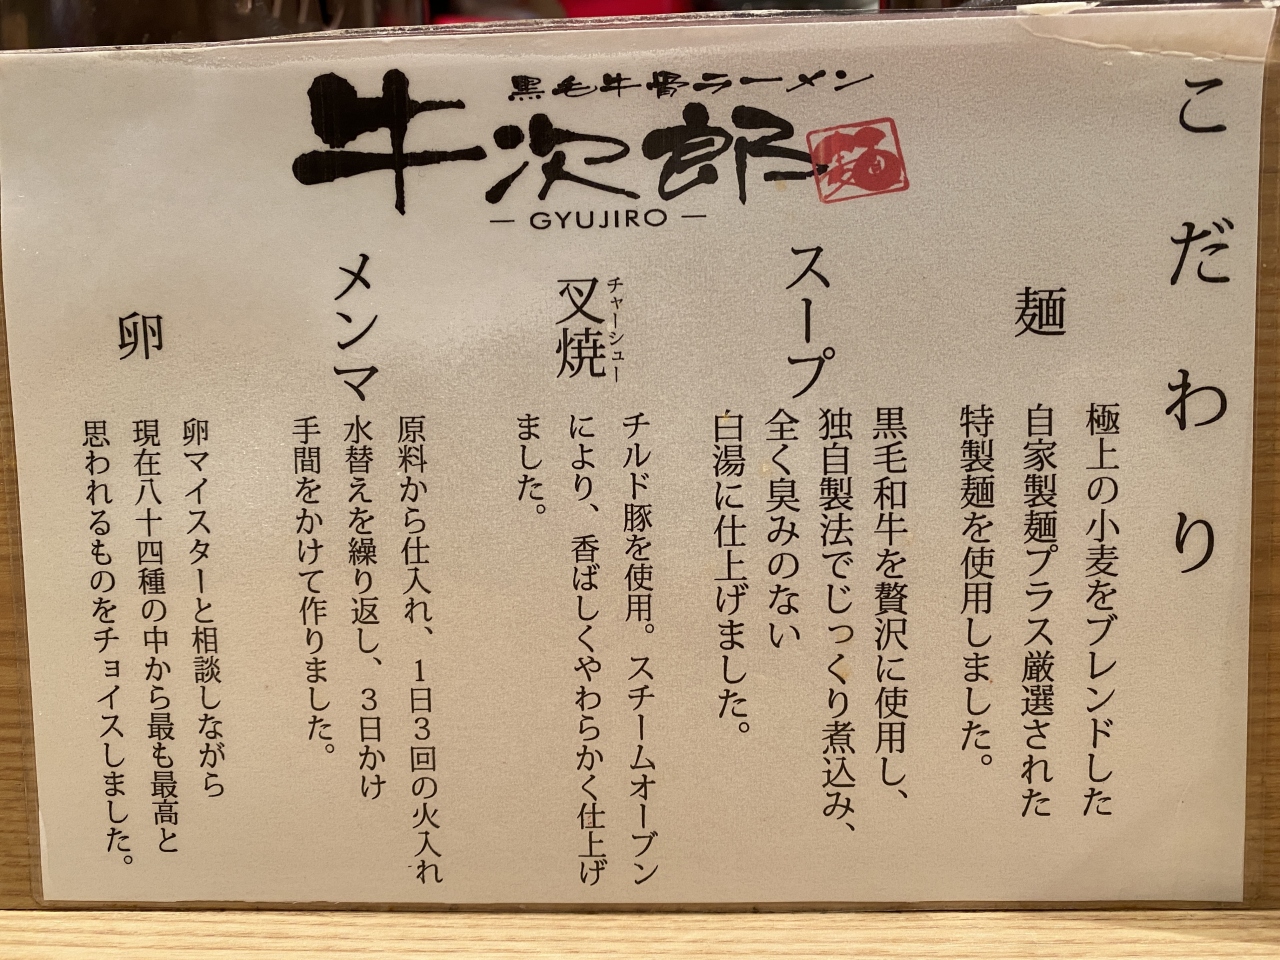 こだわり
黒毛牛骨ラーメン
牛次郎
麺
GYUJIRO
麺
極上の小麦をブレンドした
自家製麺プラス厳選された
特製麺を使用しました。
スープ
黒毛和牛を贅沢に使用し、
独自製法でじっくり煮込み、
全く臭みのない
白湯に仕上げました。
叉焼
チャーシュー
チルド豚を使用。スチームオーブン
により、香ばしくやわらかく仕上げ
ました。
メンマ
原料から仕入れ、1日3回の火入れ
水替えを繰り返し、3日かけ
手間をかけて作りました。
卵
卵マイスターと相談しながら
現在八十四種の中から最も最高と
思われるものをチョイスしました。